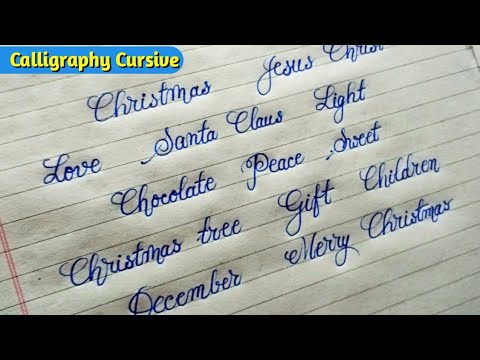 Calligraphy Cursive
Christmas Jesus Christ
Love Santa Claus Light
Chocolate Peace Sweet
Christmas tree Gift Children
December Merry Christmas